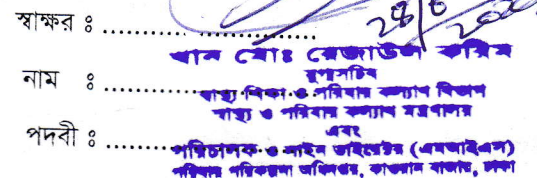 স্বাক্ষর ঃ ...........
খান মোঃ রেজাউল করিম
যুগ্মসচিব
নাম ঃ ........
স্বাস্থ্য শিক্ষা ও পরিবার কল্যাণ বিভাগ
স্বাস্থ্য ও পরিবার কল্যাণ মন্ত্রণালয়
এবং
পদবী ঃ ........
পরিচালক ও লাইন ডাইরেক্টর (এমআইএস)
পরিবার পরিকল্পনা অধিদপ্তর, কাওরান বাজার, ঢাকা